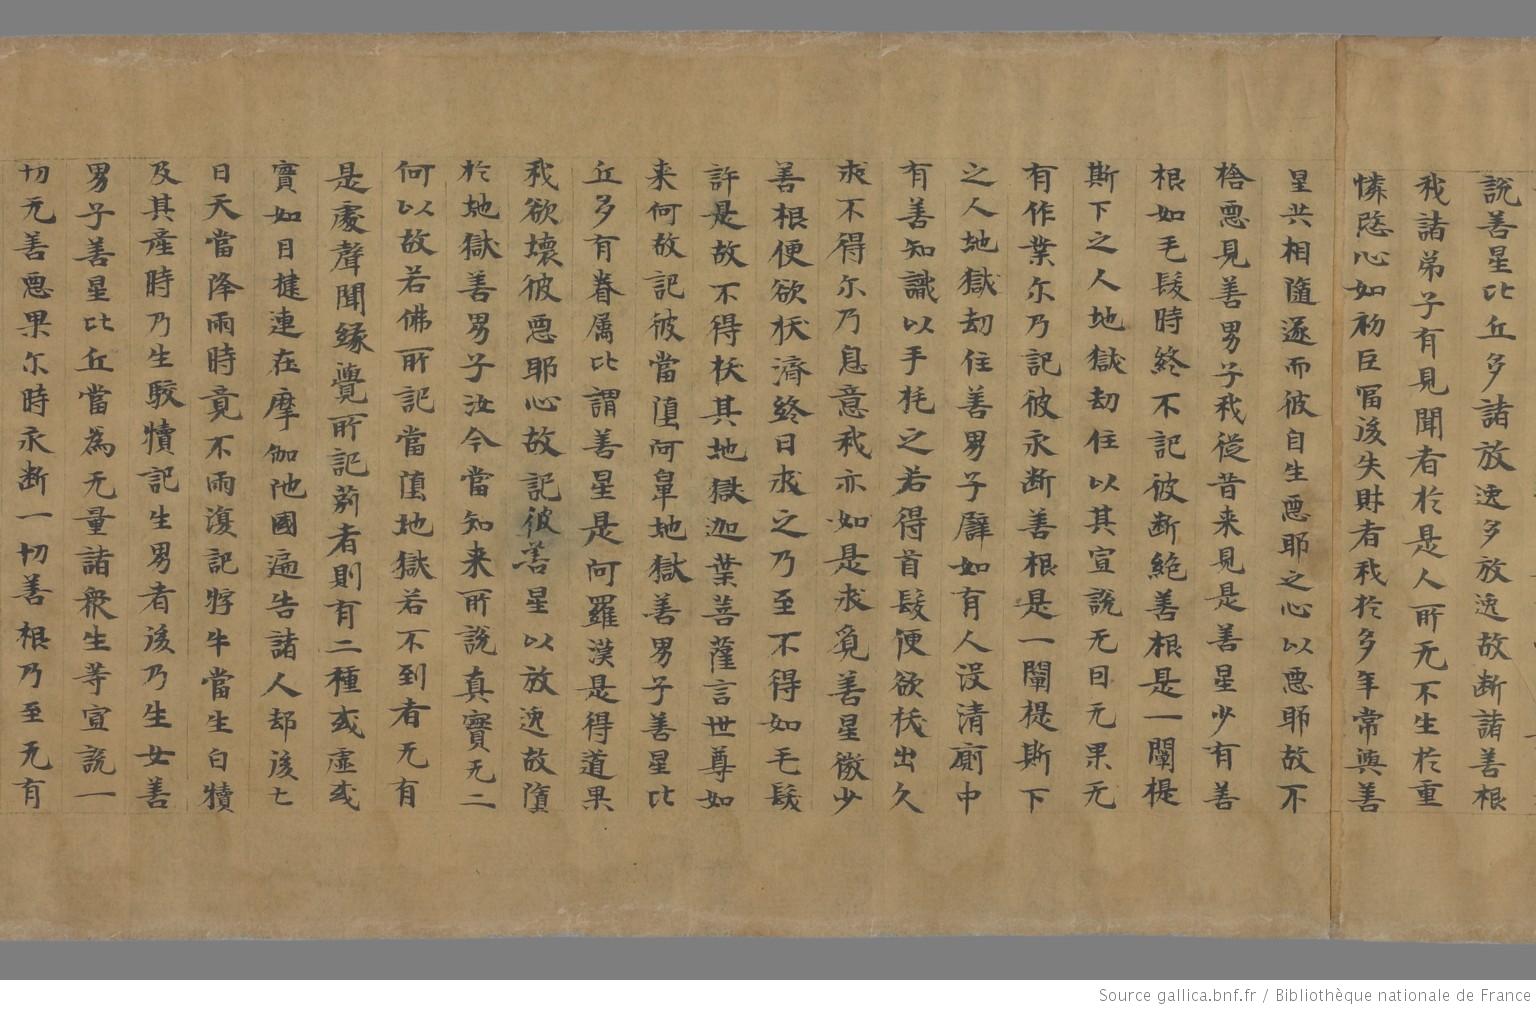 說善星比丘多諸放逸多放逸故断諸善根
我諸弟子有見聞者於是人所无不生於重
憐愍心如初巨富後失財者我於多年常與善
星共相隨逐而彼自生惡耶之心以惡耶故不
捨惡見善男子我從昔来見是善星少有善
根如毛髮時終不記彼断絶善根是一闡提
斯下之人地獄劫住以其宣說无因无果无
有作業尓乃記彼永断善根是一闡提斯下
之人地獄劫住善男子譬如有人没清廁中
有善知識以手牦之若得首髮便欲拔出久
求不得尓乃息意我亦如是求覓善星微少
善根便欲拔濟終日求之乃至不得如毛髮
許是故不得拔其地獄迦葉菩薩言世尊如
来何故記彼當堕阿鼻地獄善男子善星比
丘多有眷属皆謂善星是阿羅漢是得道果
我欲壞彼惡耶心故記彼善星以放逸故墮
於地獄善男子汝今當知来所說真實无二
何以故若佛所記當堕地獄若不到者无有
是處聲聞緣覺所記莂者則有二種或虛或
實如目揵連在摩伽陁國遍告諸人却後七
日天當降雨時竟不雨復記牸牛當生白犢
及其產時乃生駮犢記生男者後乃生女善
男子善星比丘當為无量諸衆生等宣說一
切无善惡果尓時永断一切善根乃至无有
Source gallica.bnf.fr / Bibliothèque nationale de France